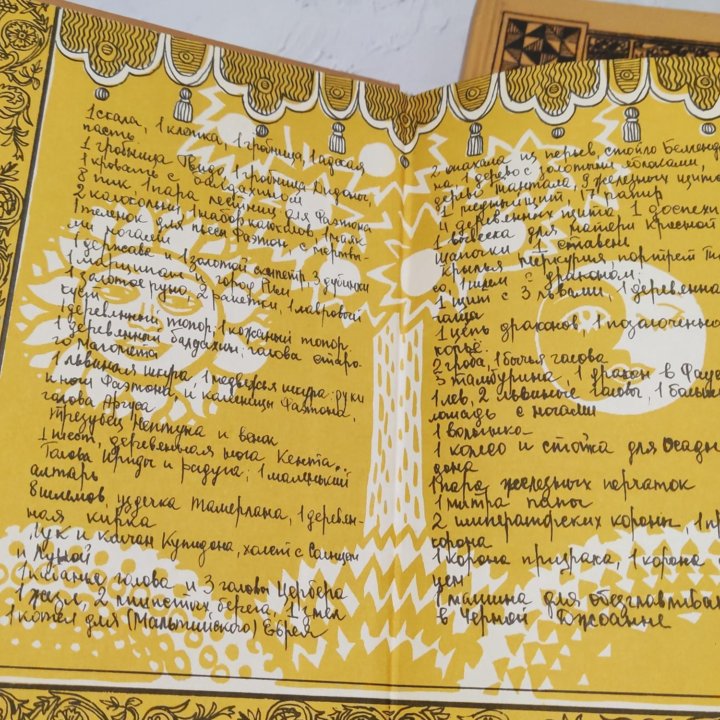 1 скала, 1 клетка, 1 гробница, 1 адская
пасть
1 гробница Гвидо, 1 гробница Дидоны,
1 кровать с балдахином
8 пик, 1 пара лестниц для Фаэтона
2 колокольни, 1 набор колоколов, 1 маяк
1 теленок для пьесы Фаэтон, с мертвы-
ми ногами
1 держава и 1 золотой скипетр, 3 дубинки
1 марципан, 1 город Рим
1 золотое руно, 2 ракетки, 1 лавровый
куст
1 деревянный топор, 1 кожаный топор
1 деревянный балдахин; голова старо-
го Магомета
1 львиная шкура, 1 медвежья шкура; руки
и ноги Фаэтона и колесницы Фаэтона,
голова Аргуса
Трезубец Нептуна и венок
1 шест; деревянная нога Кента..
Голова Ириды и радуга; 1 маленький
алтарь
8 шлемов, уздечка Тамерлана, 1 деревян-
ная кирка
Лук и колчан Купидона, холст с Солнцем
и Луной
1 кабанья голова и 3 головы Цербера
1 жезл, 2 мшистых берега, 1 змея
1 котел для (Мальтийского) Еврея
2 опахала из перьев, стойло Белленд
на, 1 дерево с золотыми яблоками,
дерево Тантала, 9 железных щито
1 медный щит, 1 рапир
4 деревянных щита, 1 доспехи
1 вывеска для матери Красной
Шапочки 1 ставень
крылья Меркурия, портрет Та
о, 1 шлем с драконом;
1 щит с 3 львами, 1 деревянна
чаща
1 цепь драконов, 1 позолоченно
копьё
2 гроба, 1 бычья голова
3 тамбурина, 1 дракон в Фауст
1 лев, 2 львиные головы, 1 больш
лошадь с ногами
1 волынка
1 колесо и стойка для Осады
дона
1 пара железных перчаток
1 митра папы
2 императорских короны, 1 пр
корона
1 корона призрака, 1 корона с
цем
1 машина для обезглавливан
в Черной Джоанне